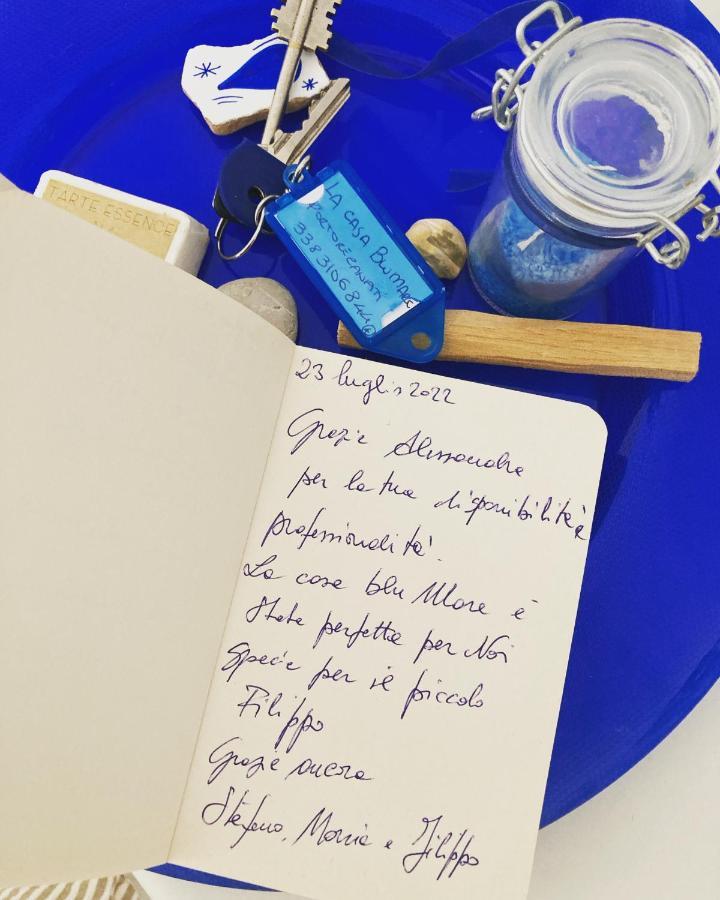 TARTE ESSENCE
LA CASA BLUMARE
PORTORECANATI
3383106844
23 luglio 2022
Grazie Alessandra
per la tua disponibilità e
professionalità.
La casa blu Mare è
stata perfetta per Noi
specie per il piccolo
Filippo
Grazie ancora
Stefano, Monia e Filippo